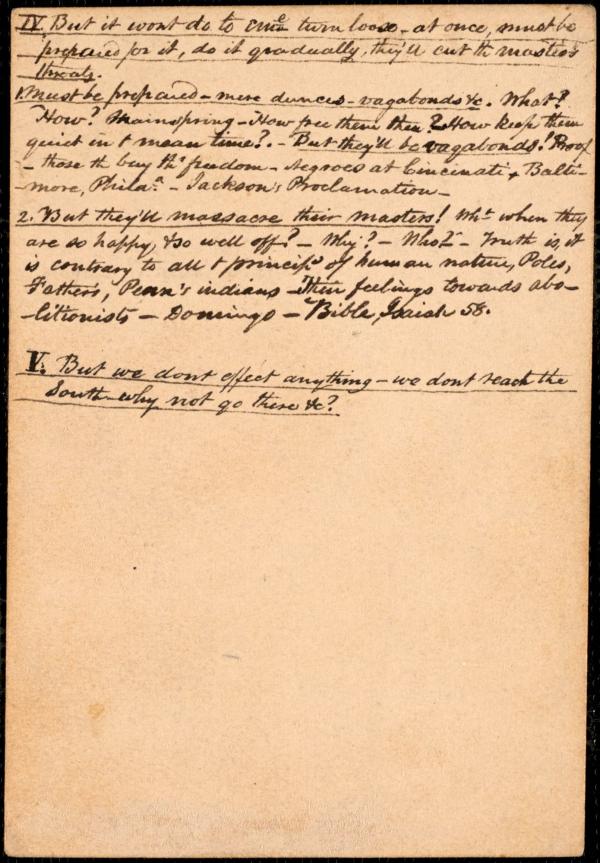 IV. But it wont do to turn loose - at once, must be
prepared for it, do it gradually, they'll cut th master's
throats.
1. Must be prepared - mere dunces - vagabonds &c. What?
How? Mainspring - How free them then? How keep them
quiet in t mean time? - But they'll be vagabonds! Proof
- those th buy th' freedom - Negroes at Cincinati & Balti-
more, Phila.a - Jackson's Proclamation -
2. But they'll massacre their masters! Wht when they
are so happy, & so well off? - Why? - - Truth is, it
is contrary to all t princips of human nature, Poles,
Fathers, Penn's indians - Their feelings towards abo-
litionists - Domingo - Bible, Isaiah 58.
V. But we dont effect anything - we dont reach the
South - why not go there &c?